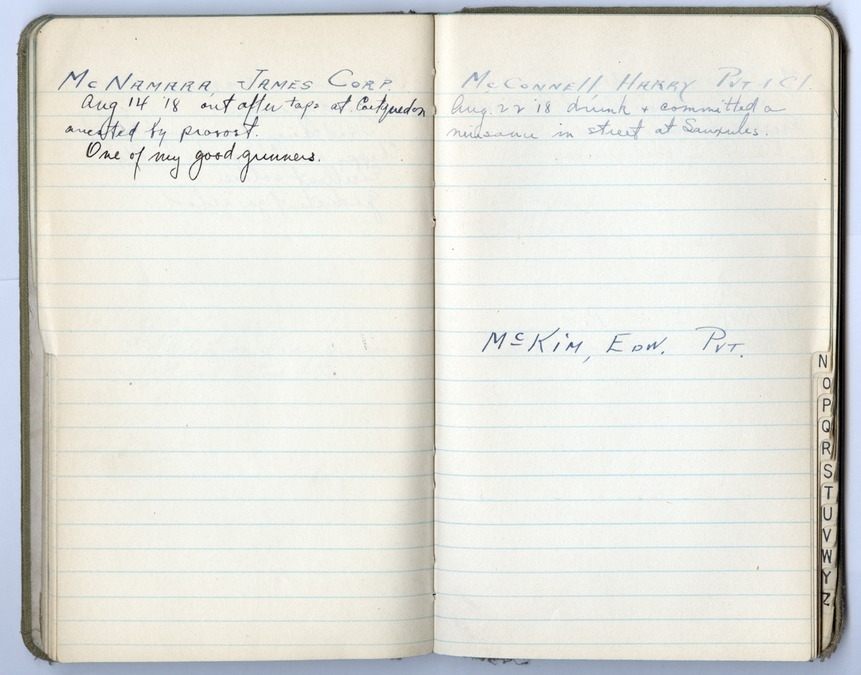 McNamara, James Corp.
Aug 14 '18 out after taps at Coetquidon
arrested by provost.
One of my good gunners.
McConnell, Harry Pvt 1 Cl.
Aug. 22 '18 drunk + committed a
nuisance in street at Sauxules.
McKim, Edw. Pvt.
N
O
P
Q
R
S
T
U
V
W
Y
Z